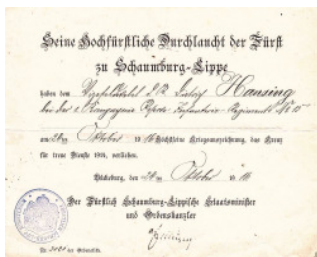 Seine Hochfürstliche Durchlaucht der Fürst
zu Schaumburg-Lippe
haben dem Vizefeldwebel d. R. Hansing
bei der Kompagnie Reserve-Infanterie-Regiments № 15
am 20ten Oktober 1916 Höchstseine Kriegsauszeichnung, das Kreuz
für treue Dienste 1914, verliehen.
Bückeburg, den 20ten Oktober 1916
Der Fürstlich Schaumburg-Lippische Staatsminister
und Ordenskanzler
Nr. der Ordensliste.